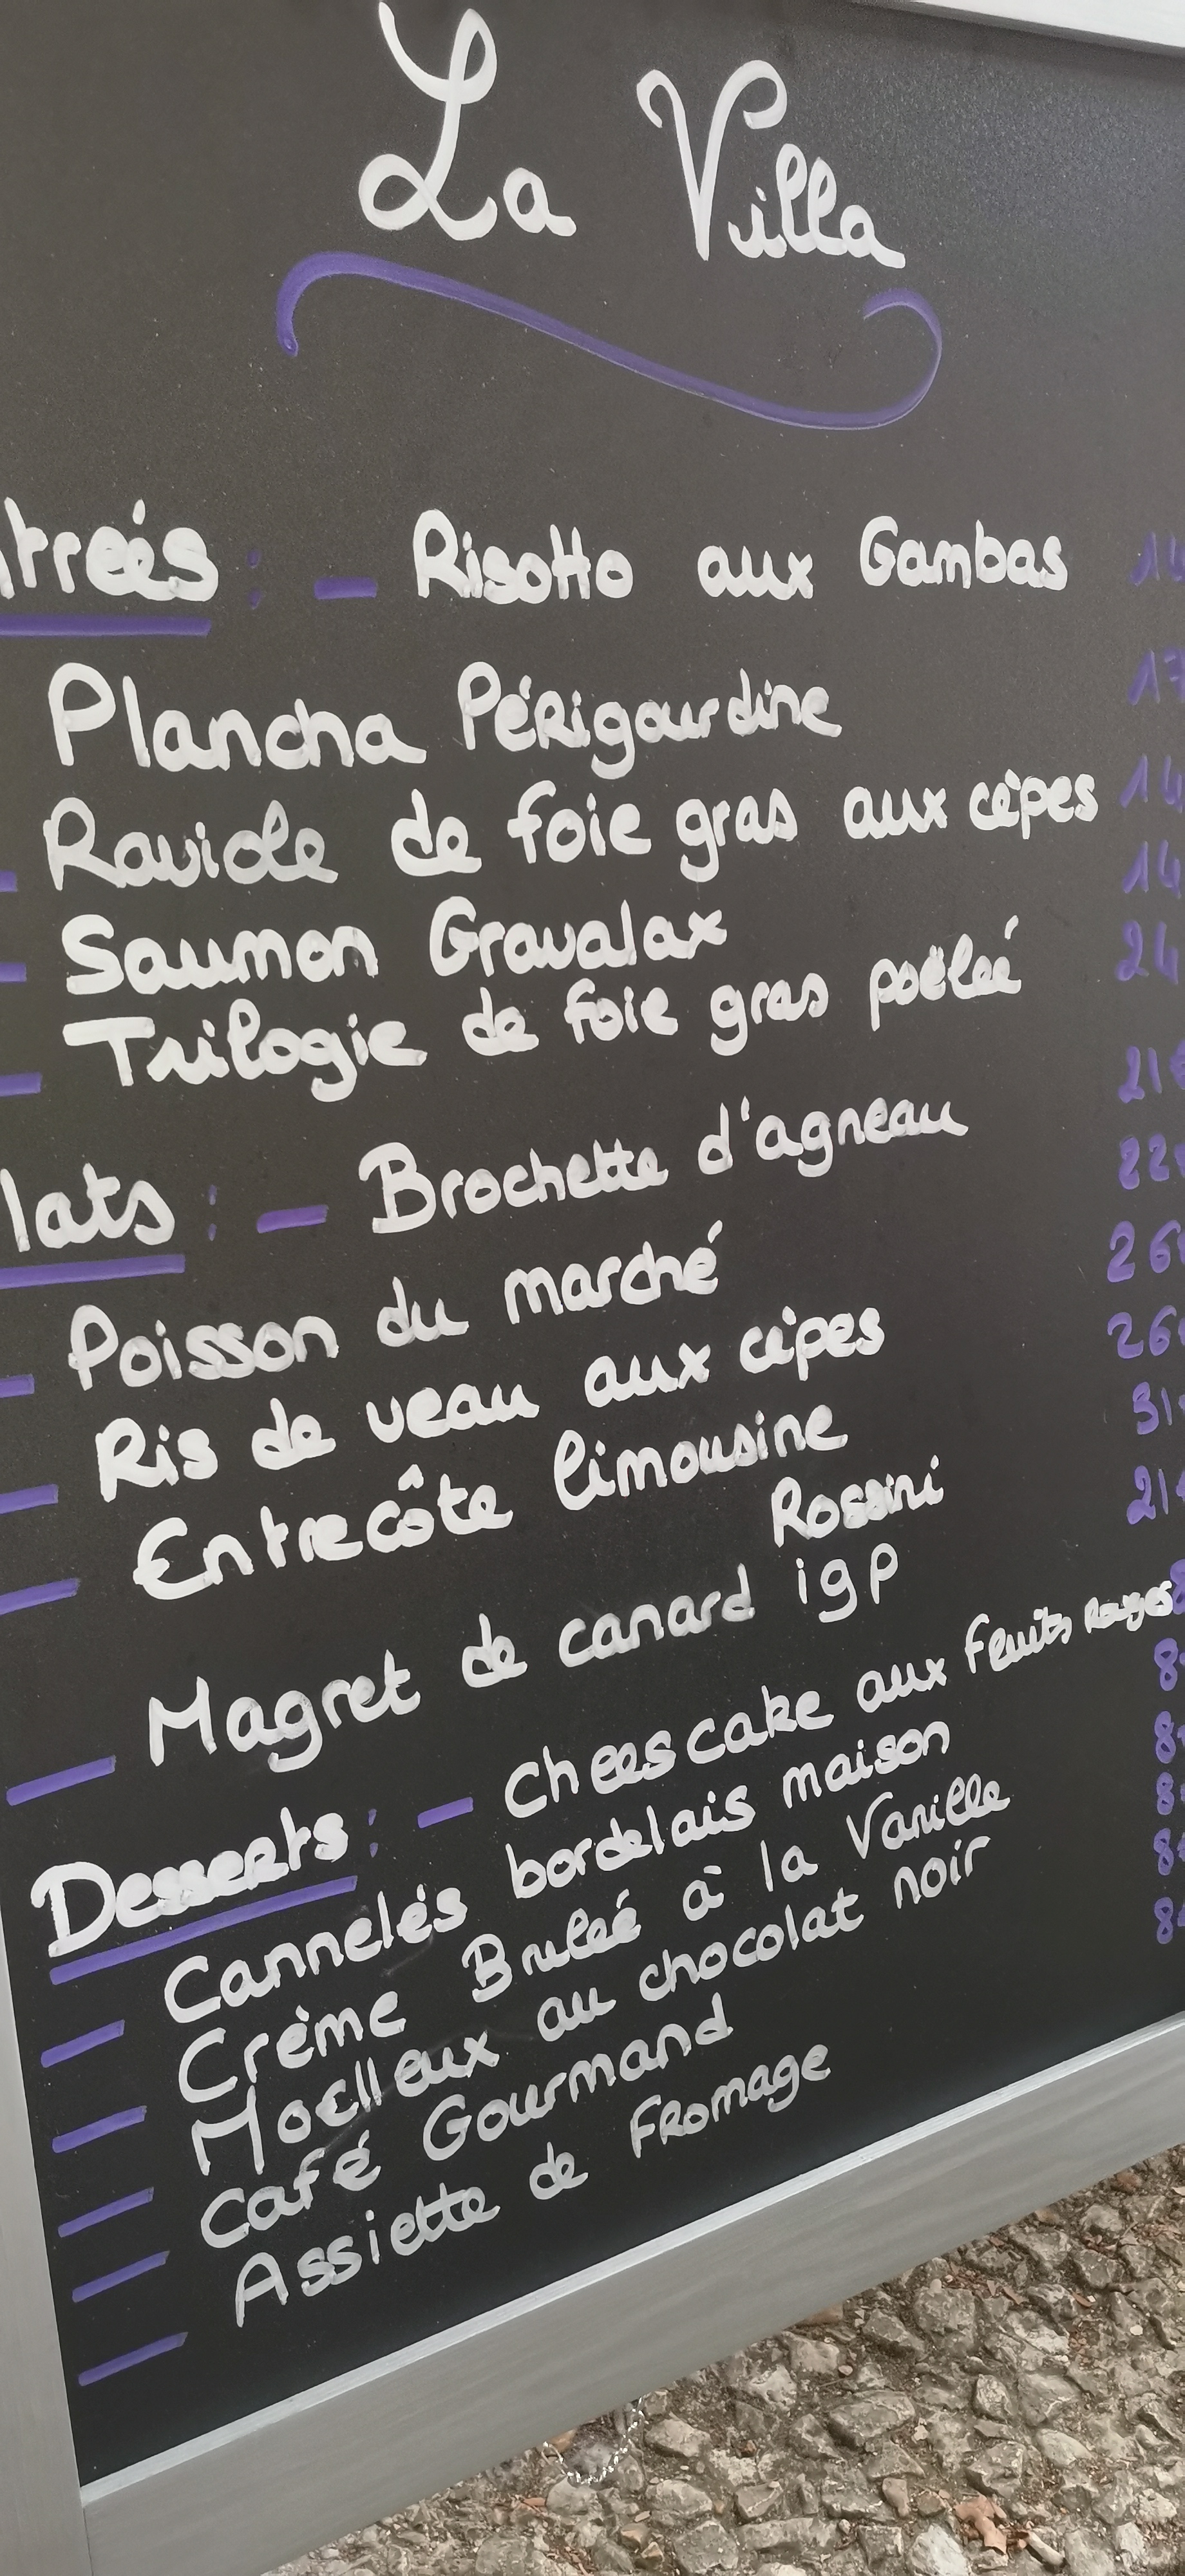 La Villa
ntrées : - Risotto aux Gambas 14
Plancha Périgourdine 17
- Raviole de foie gras aux cèpes 14
- Saumon Gravalax 14
- Trilogie de foie gras poëleé 24
lats : - Brochette d'agneau 21€
- Poisson du marché 22
- Ris de veau aux cèpes 26
- Entrecôte limousine 26
Rossini 31
- Magret de canard igp 21
Desserts : - Cheescake aux fruits Rouges 8
- Cannelés bordelais maison 8
- Crème Bruleé à la Vanille 8
- Moelleux au chocolat noir 8
- Café Gourmand 8
- Assiette de Fromage 8